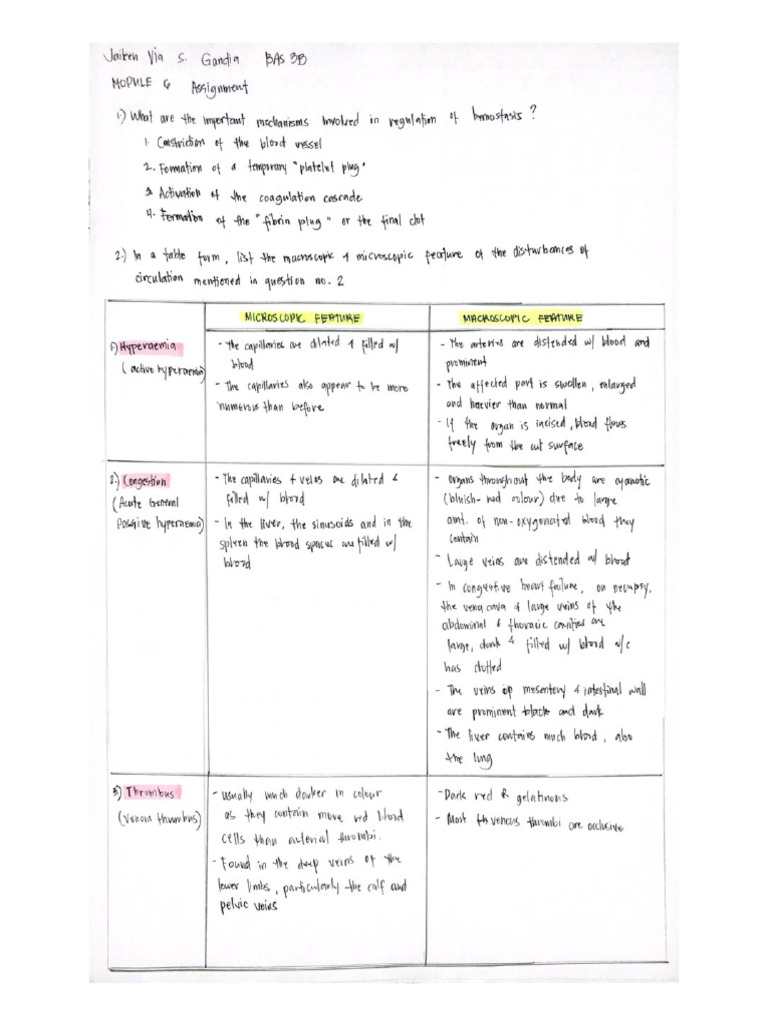 Jaiken Via S. Gandia BAS 3B
MODULE 6 Assignment
1.) What are the important mechanisms involved in regulation of hemostasis?
1. Constriction of the blood vessel
2. Formation of a temporary "platelet plug"
3. Activation of the coagulation cascade
4. Formation of the "fibrin plug" or the final clot
2.) In a table form, list the macroscopic & microscopic feature of the disturbances of
circulation mentioned in question no. 2
MICROSCOPIC FEATURE
MACROSCOPIC FEATURE
1) Hyperaemia
(active hyperaemia)
- The capillaries are dilated & filled w/
blood
- The capillaries also appear to be more
numerous than before
- The arteries are distended w/ blood and
prominent
- The affected part is swollen, enlarged
and heavier than normal
- If the organ is incised, blood flows
freely from the cut surface
2.) Congestion
(Acute General
Passive hyperaemia)
- The capillaries & veins are dilated &
filled w/ blood
- In the liver, the sinusoids and in the
spleen the blood spaces are filled w/
blood
- Organs throughout the body are cyanotic
(bluish-red colour) due to large
amt. of non-oxygenated blood they
contain
- Large veins are distended w/ blood
- In congestive heart failure, on necropsy,
the vena cava & large veins of the
abdominal & thoracic cavities are
large, dark & filled w/ blood w/c
has clotted
- The veins of mesentery & intestinal wall
are prominent black and dark
- The liver contains much blood, also
the lung
3) Thrombus
(Venous thrombus)
- Usually much darker in colour
as they contain more red blood
cells than arterial thrombi.
- Found in the deep veins of the
lower limbs, particularly the calf and
pelvic veins
- Dark red & gelatinous
- Most venous thrombi are occlusive